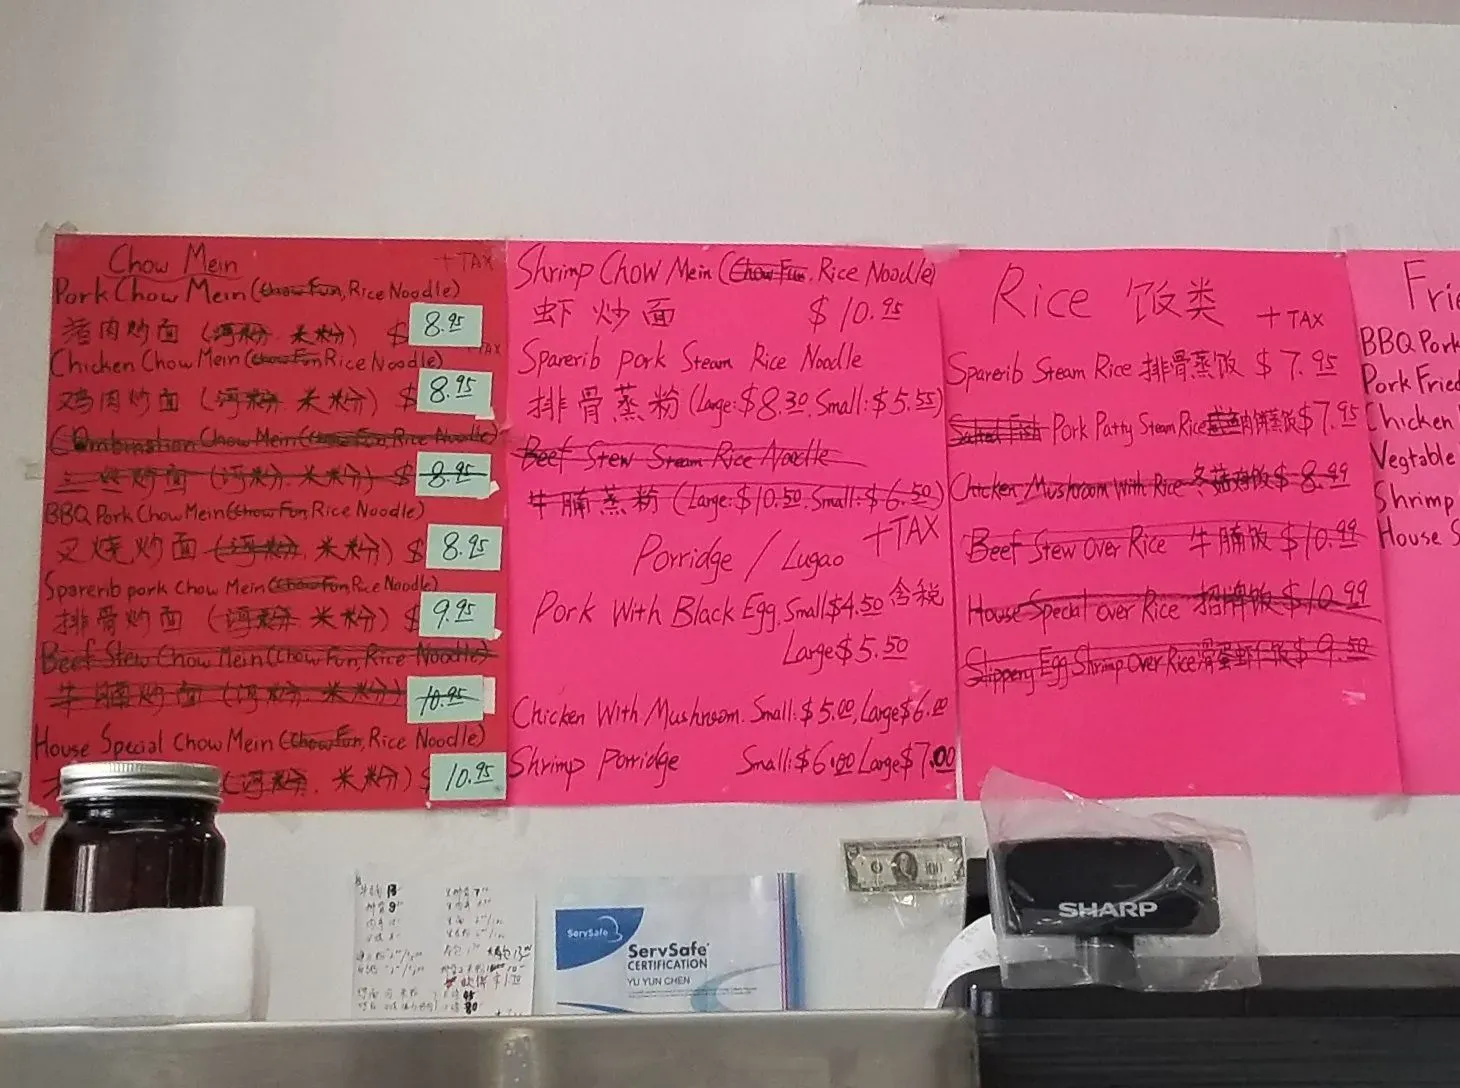 Chow Mein
+ TAX
Pork Chow Mein (Chow Fun, Rice Noodle)
猪肉炒面 (河粉. 米粉) $ 8.95
Chicken Chow Mein (Chow Fun Rice Noodle)
鸡肉炒面 (河粉. 米粉) $ 8.95
Combination Chow Mein (Chow Fun, Rice Noodle)
三丝炒面 (河粉. 米粉) $ 8.95
BBQ Pork Chow Mein (Chow Fun Rice Noodle)
叉烧炒面 (河粉. 米粉) $ 8.95
Sparerib pork Chow Mein (Chow Fun, Rice Noodle)
排骨炒面 (河粉. 米粉) $ 9.95
Beef Stew Chow Mein (Chow Fun, Rice Noodle)
牛腩炒面 (河粉. 米粉) 10.95
House Special Chow Mein (Chow Fun, Rice Noodle)
(河粉. 米粉) $ 10.95
Shrimp Chow Mein (Chow Fun. Rice Noodle)
虾炒面 $ 10.95
Sparerib pork Steam Rice Noodle
排骨蒸粉 (Large: $8.30. Small: $5.55)
Beef Stew Steam Rice Noodle
牛腩蒸粉 (Large: $10.50. Small: $6.50)
+ TAX
Porridge / Lugao
Pork With Black Egg. Small $4.50 含税
Large $5.50
Chicken With Mushroom. Small: $5.00, Large $6.00
Shrimp Porridge Small: $6.00 Large $7.00
Rice 饭类
+ TAX
Sparerib Steam Rice 排骨蒸饭 $ 7.95
Salted Fish Pork Patty Steam Rice 咸鱼肉饼蒸饭 $7.95
Chicken Mushroom With Rice 冬菇鸡饭 $ 8.99
Beef Stew Over Rice 牛腩饭 $10.99
House Special over Rice 招牌饭 $10.99
Slippery Egg Shrimp Over Rice 滑蛋虾仁饭 $ 9.50
BBQ Pork
Pork
Chicken
Vegtable
Shrimp
House
ServSafe
ServSafe
CERTIFICATION
YU YUN CHEN
100
SHARP